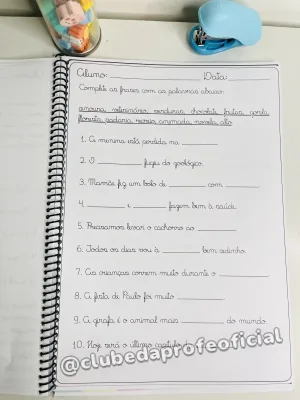 Aluno: Data:
Complete as frases com as palavras abaixo:
amora, veterinário, verduras, chocolate, frutas, gorila
floresta, padaria, recreio, animada, novela, alto
1. A menina está perdida na
2. O fugiu do zoológico.
3. Mamãe fez um bolo de com
4. e fazem bem à saúde.
5. Precisamos levar o cachorro ao
6. Todos os dias vou à bem cedinho.
7. As crianças correm muito durante o
8. A festa de Paulo foi muito
9. A girafa é o animal mais do mundo.
10. Hoje será o último capítulo d
@clubedaprofeoficial